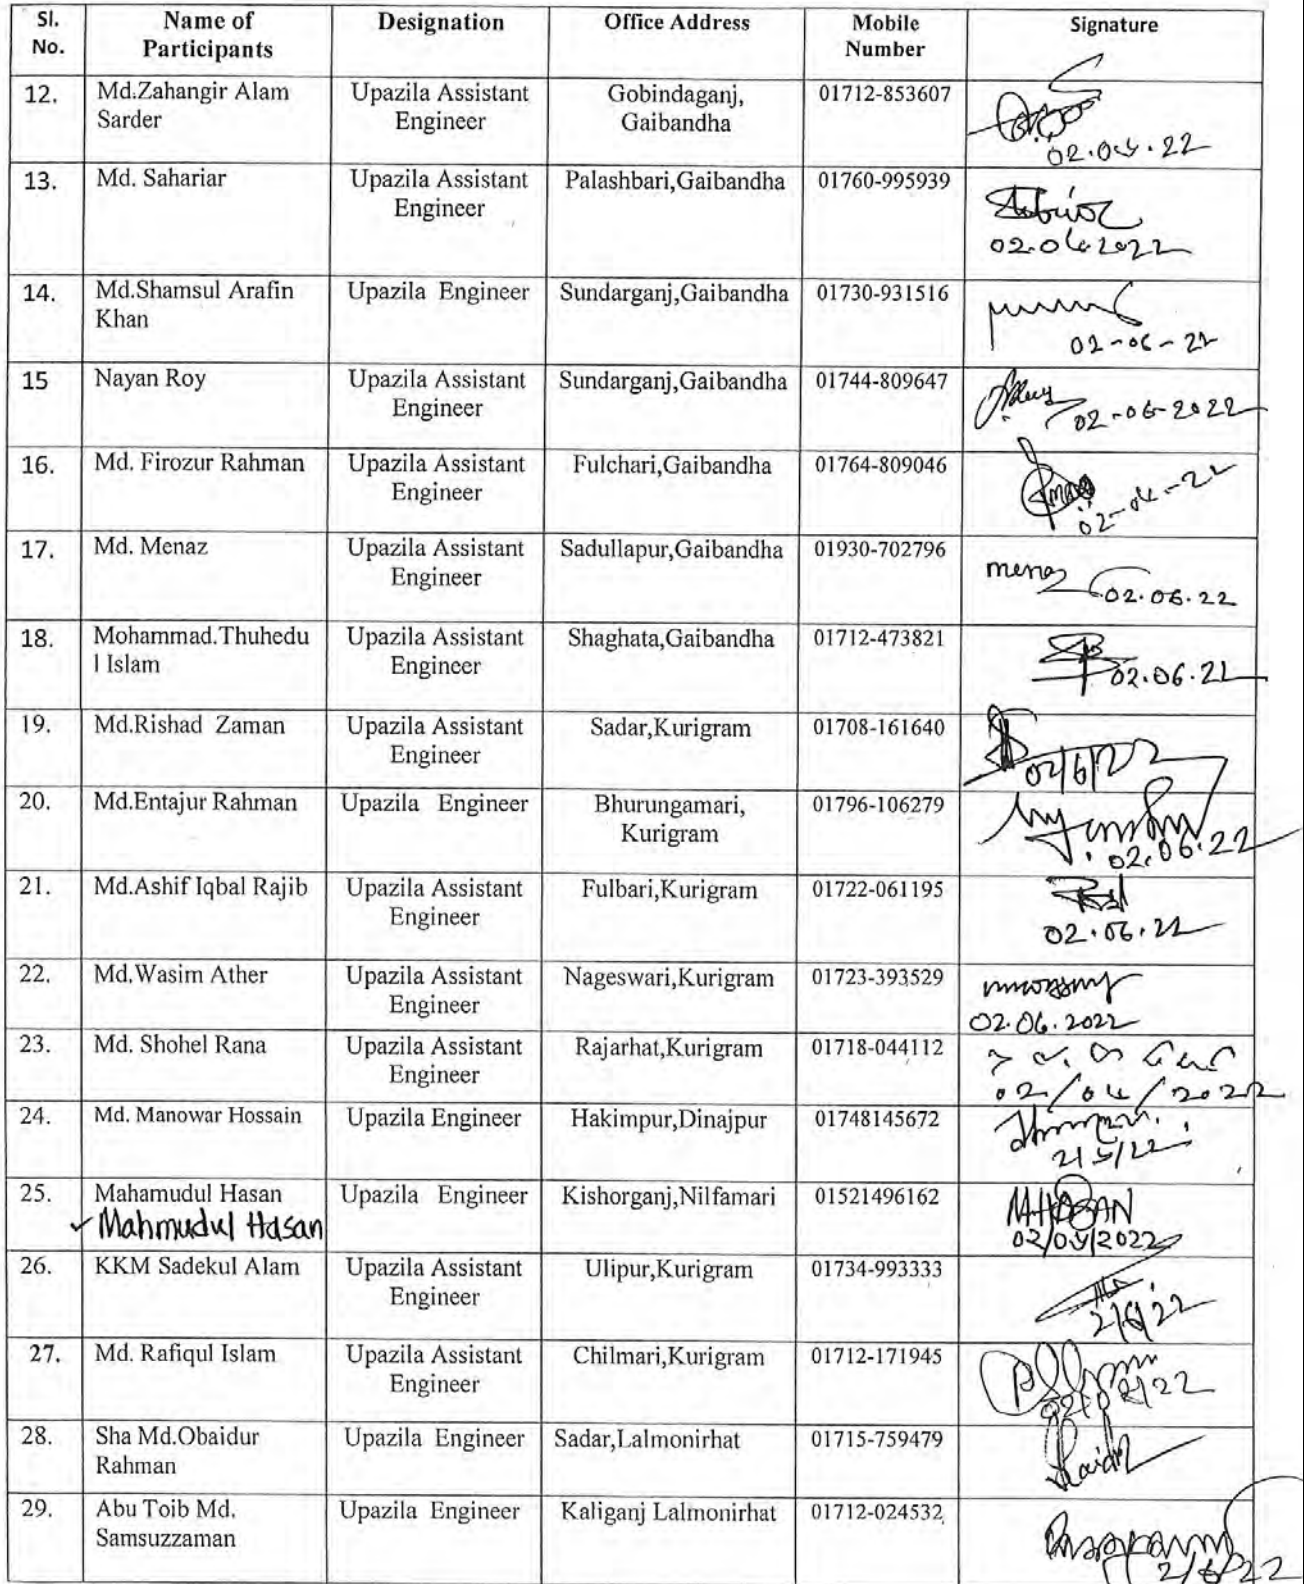 Sl. No. Name of Participants Designation Office Address Mobile Number Signature
12. Md.Zahangir Alam Sarder Upazila Assistant Engineer Gobindaganj, Gaibandha 01712-853607
13. Md. Sahariar Upazila Assistant Engineer Palashbari,Gaibandha 01760-995939
14. Md.Shamsul Arafin Khan Upazila Engineer Sundarganj,Gaibandha 01730-931516
15 Nayan Roy Upazila Assistant Engineer Sundarganj,Gaibandha 01744-809647 02-06-2022
16. Md. Firozur Rahman Upazila Assistant Engineer Fulchari,Gaibandha 01764-809046
17. Md. Menaz Upazila Assistant Engineer Sadullapur,Gaibandha 01930-702796 menaz 02.06.22
18. Mohammad.Thuhedu l Islam Upazila Assistant Engineer Shaghata,Gaibandha 01712-473821 02.06.22
19. Md.Rishad Zaman Upazila Assistant Engineer Sadar,Kurigram 01708-161640 02/6/22
20. Md.Entajur Rahman Upazila Engineer Bhurungamari, Kurigram 01796-106279 02.06.22
21. Md.Ashif Iqbal Rajib Upazila Assistant Engineer Fulbari,Kurigram 01722-061195 02.06.22
22. Md.Wasim Ather Upazila Assistant Engineer Nageswari,Kurigram 01723-393529 02.06.2022
23. Md. Shohel Rana Upazila Assistant Engineer Rajarhat,Kurigram 01718-044112
24. Md. Manowar Hossain Upazila Engineer Hakimpur,Dinajpur 01748145672
25. Mahamudul Hasan Upazila Engineer Kishorganj,Nilfamari 01521496162 M.HASAN
✓ Mahmudul Hasan
26. KKM Sadekul Alam Upazila Assistant Engineer Ulipur,Kurigram 01734-993333 2/6/22
27. Md. Rafiqul Islam Upazila Assistant Engineer Chilmari,Kurigram 01712-171945
28. Sha Md.Obaidur Rahman Upazila Engineer Sadar,Lalmonirhat 01715-759479
29. Abu Toib Md. Samsuzzaman Upazila Engineer Kaliganj Lalmonirhat 01712-024532 2/6/22